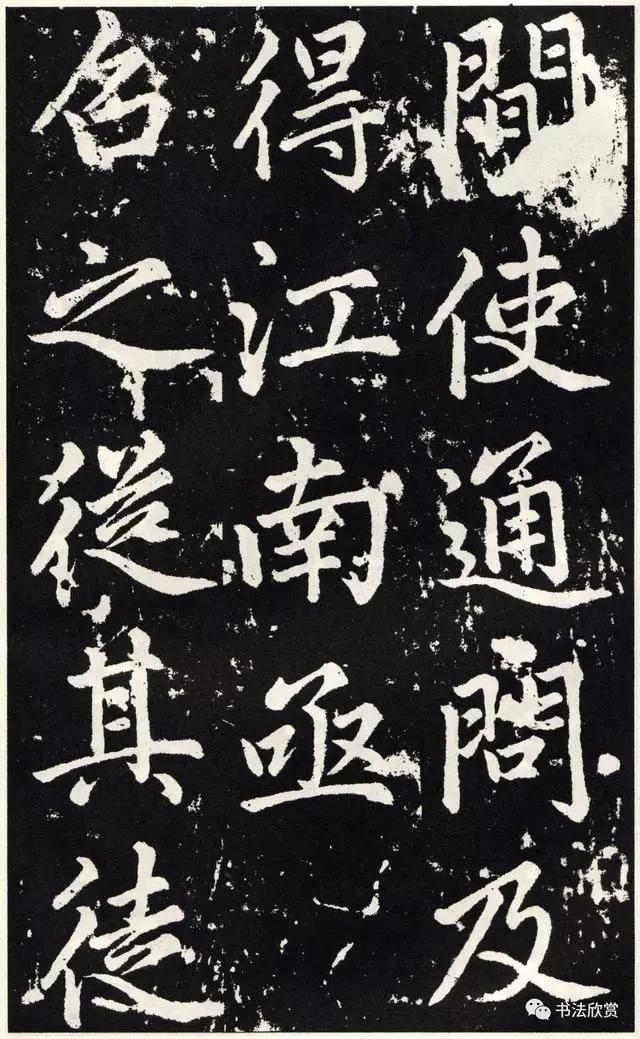 間使通問及
得江南亟
召之從其徒
书法欣赏